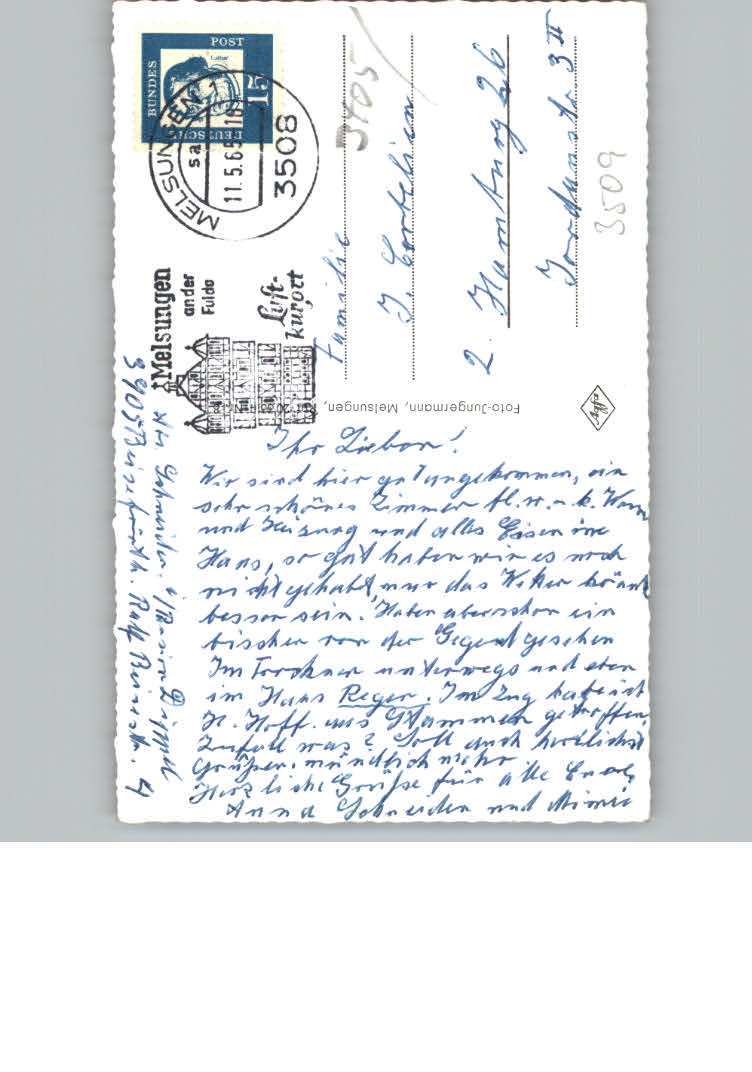 DEUTSCHE
BUNDES
POST
Luther
15
MELSUNGEN 1
sa
11.5.65-18
3508
Melsungen
an der
Fulda
Luft-
kurort
3405
3509
Familie
J.
2 Hamburg 26
Jordanstr. 3 II
Foto-Jungermann, Melsungen,
Agfa
Abs. Schneider
Ihr Lieben!
Wir sind hier gut angekommen, ein
sehr schönes Zimmer fl. w. u. k. Wasser
und Heizung und alles Essen im
Haus, so gut haben wir es noch
nicht gehabt, nur das Wetter könnt
besser sein. Haben aber schon ein
bischen von der Gegend gesehen
Im Trocknen unterwegs und eben
im Haus Regen. Im Zug habe ich
H. Hoff. aus Stammen getroffen,
Zufall was? Soll auch herzlichst
Grüßen. mündlich mehr
Herzliche Grüße für alle Eure
Anna Schneider und Mimi